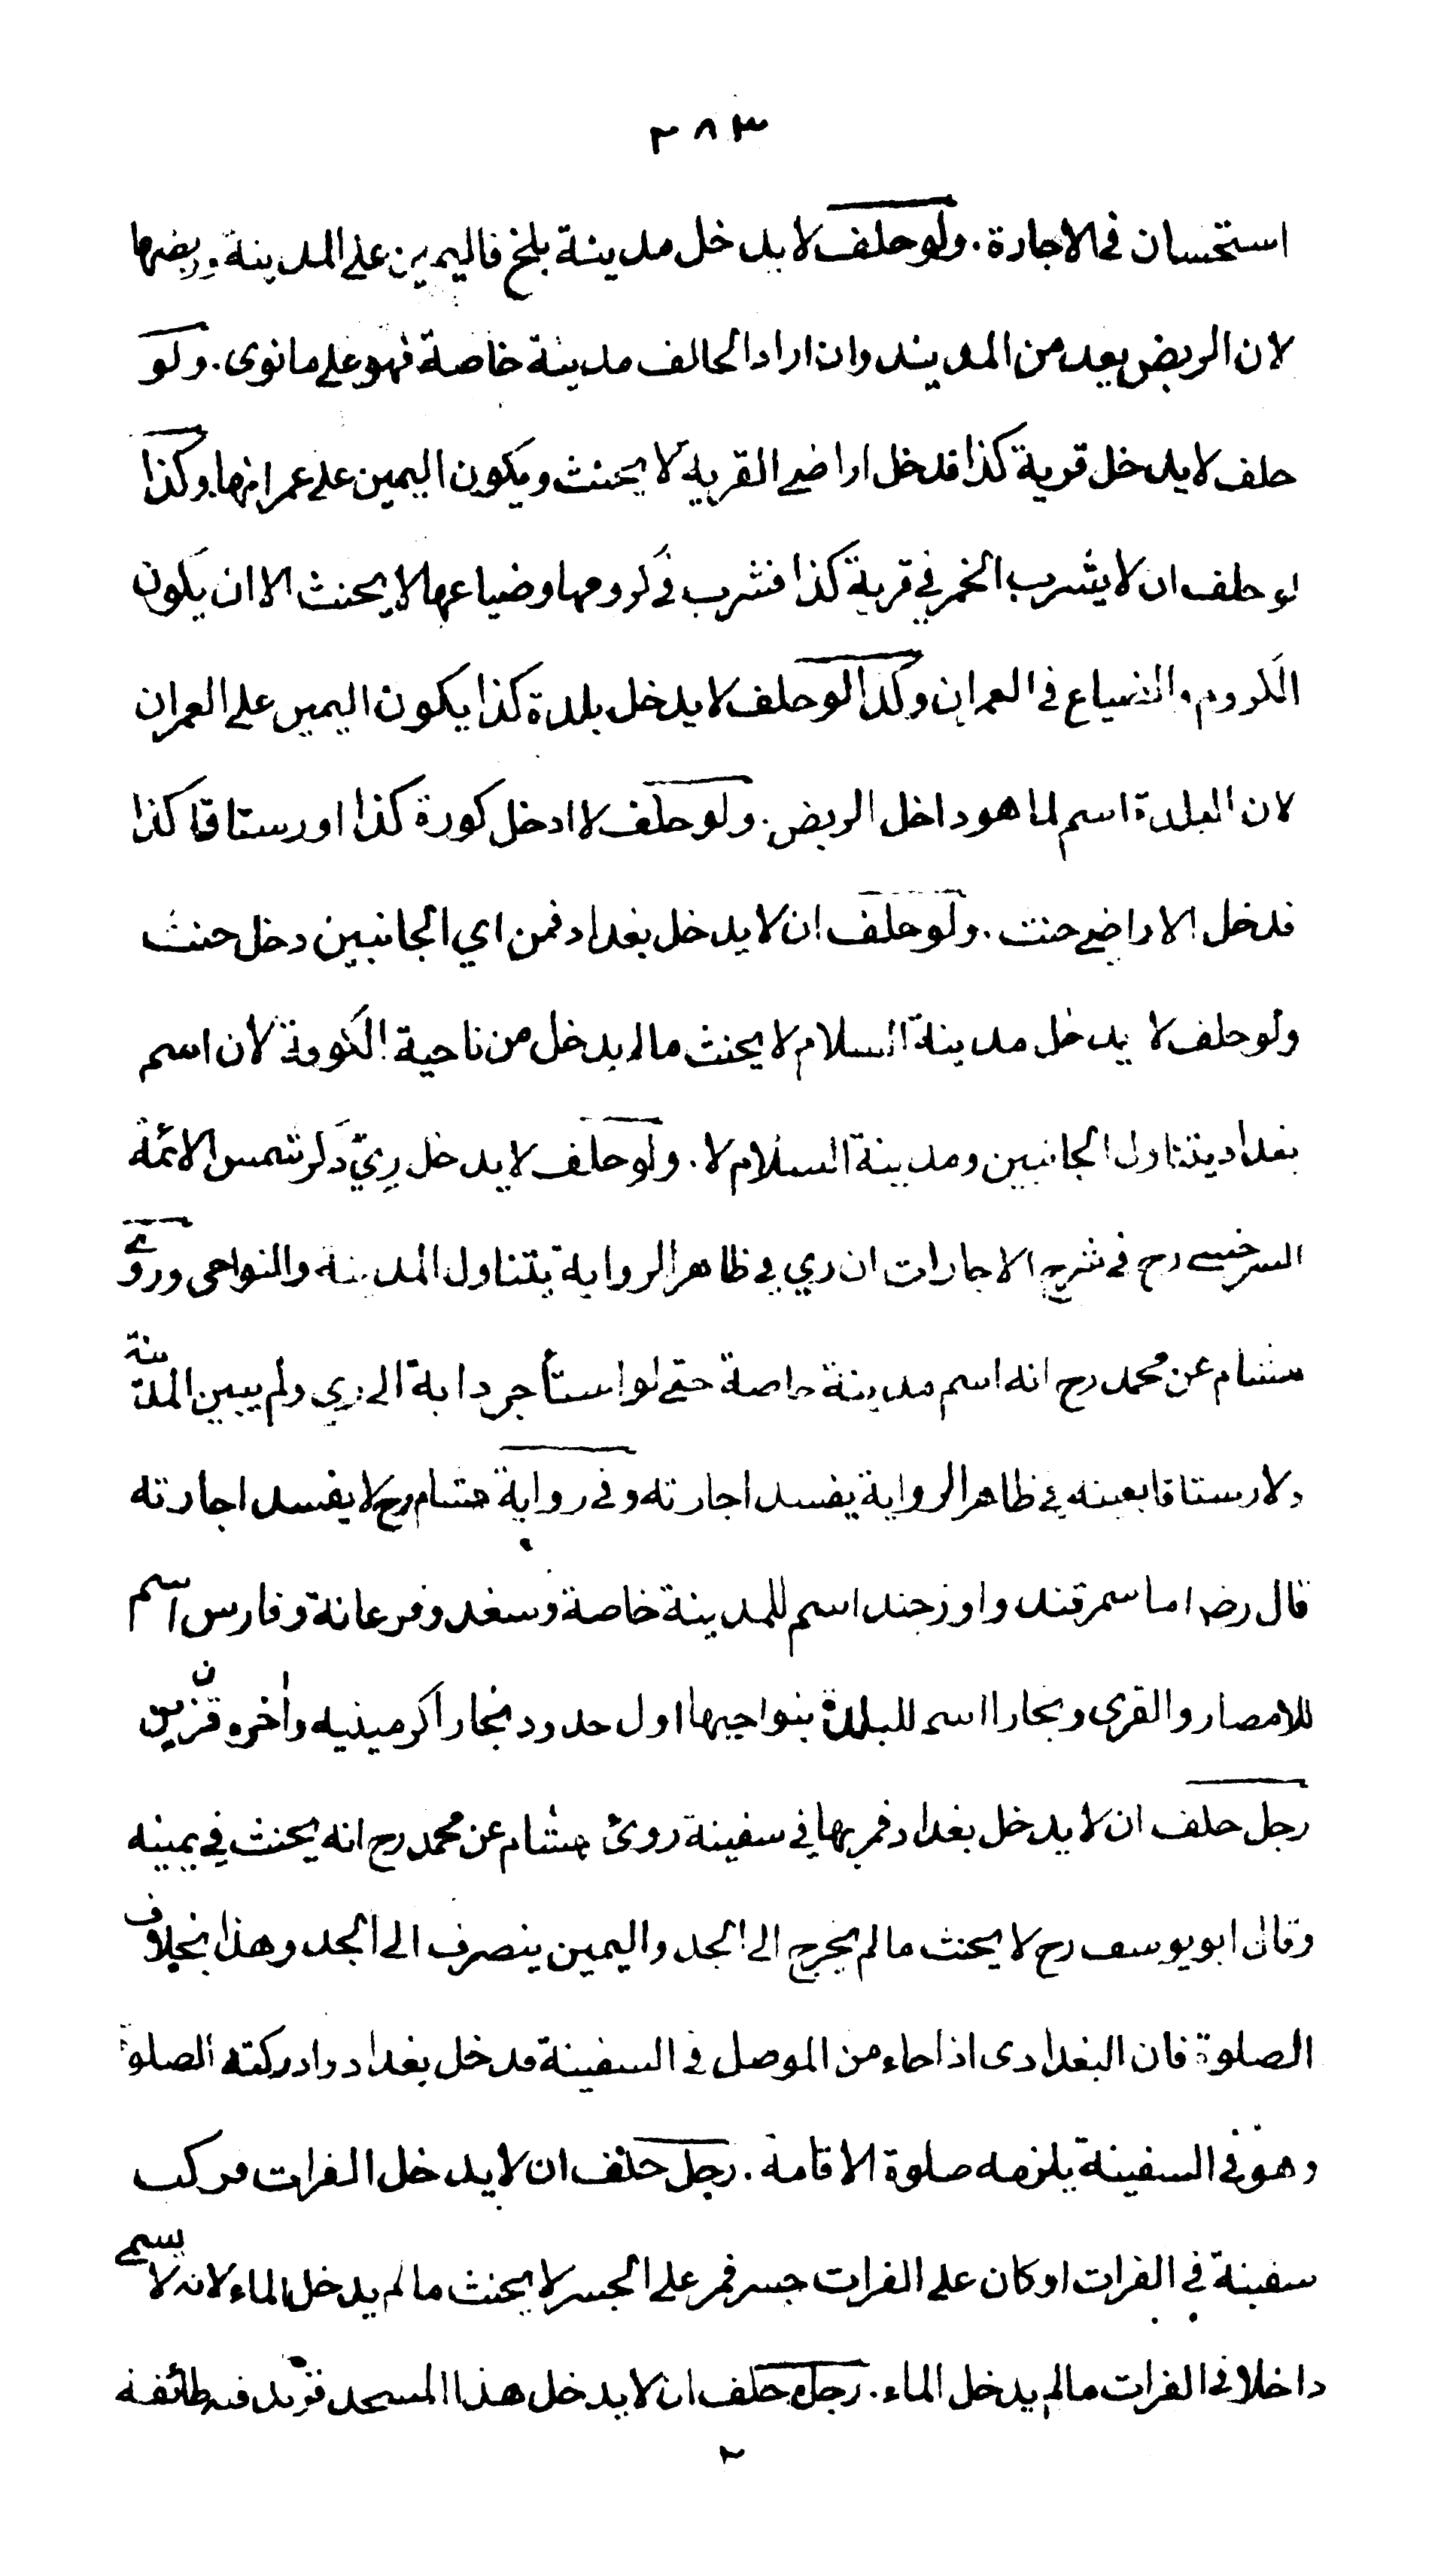 ٢٨٣
استحسان في الاجارة . ولو حلف لا يدخل مدينة بلخ فاليمين على المدينة وربضها
لان الربض يعد من المدينه وان اراد الحالف مدينة خاصة فهو على ما نوى . ولو
حلف لا يدخل قرية كذا فدخل اراضي القرية لا يحنث ويكون اليمين على عمرانها وكذا
لو حلف ان لا يشرب الخمر في قرية كذا فشرب في كرومها وضياعها لا يحنث الا ان يكون
الكروم والضياع في العمران وكذا لو حلف لا يدخل بلدة كذا يكون اليمين على العمران
لان البلدة اسم لما هو داخل الربض . ولو حلف لا ادخل كورة كذا او رستاقا كذا
فدخل الاراضي حنث . ولو حلف ان لا يدخل بغداد فمن اي الجانبين دخل حنث
ولو حلف لا يدخل مدينة السلام لا يحنث مالم يدخل من ناحية الكوفة لان اسم
بغداد يتناول الجانبين ومدينة السلام لا . ولو حلف لا يدخل ريّ ذكر شمس الائمة
السرخسي رح في شرح الاجارات ان ري في ظاهر الرواية يتناول المدينة والنواحي وروى
هشام عن محمد رح انه اسم مدينة خاصة حتى لو استأجر دابة الى ري ولم يبين المدينة
ولا رستاقا بعينه في ظاهر الرواية يفسد اجارته وفي رواية هشام رح لا يفسد اجارته
قال رضـ اما سمرقند واوزجند اسم للمدينة خاصة وسغد وفرغانة وفارس اسم
للامصار والقرى وبخارا اسم للبلدة بنواحيها اول حدود بخارا كرمينيه وآخره
رجل حلف ان لا يدخل بغداد فمر بها في سفينة روى هشام عن محمد رح انه يحنث في يمينه
وقال ابو يوسف رح لا يحنث ما لم يخرج الى الجد واليمين ينصرف الى الجد وهذا بخلاف
الصلوة فان البغدادى اذا جاء من الموصل في السفينة فدخل بغداد وادركته الصلوة
وهو في السفينة يلزمه صلوة الاقامة . رجل حلف ان لا يدخل الفرات فركب
سفينة في الفرات او كان على الفرات جسر فمر على الجسر لا يحنث ما لم يدخل الماء لانه لا يسمى
داخلا في الفرات مالم يدخل الماء . رجل حلف ان لا يدخل هذا المسجد فزيد فيه طائفة
٢